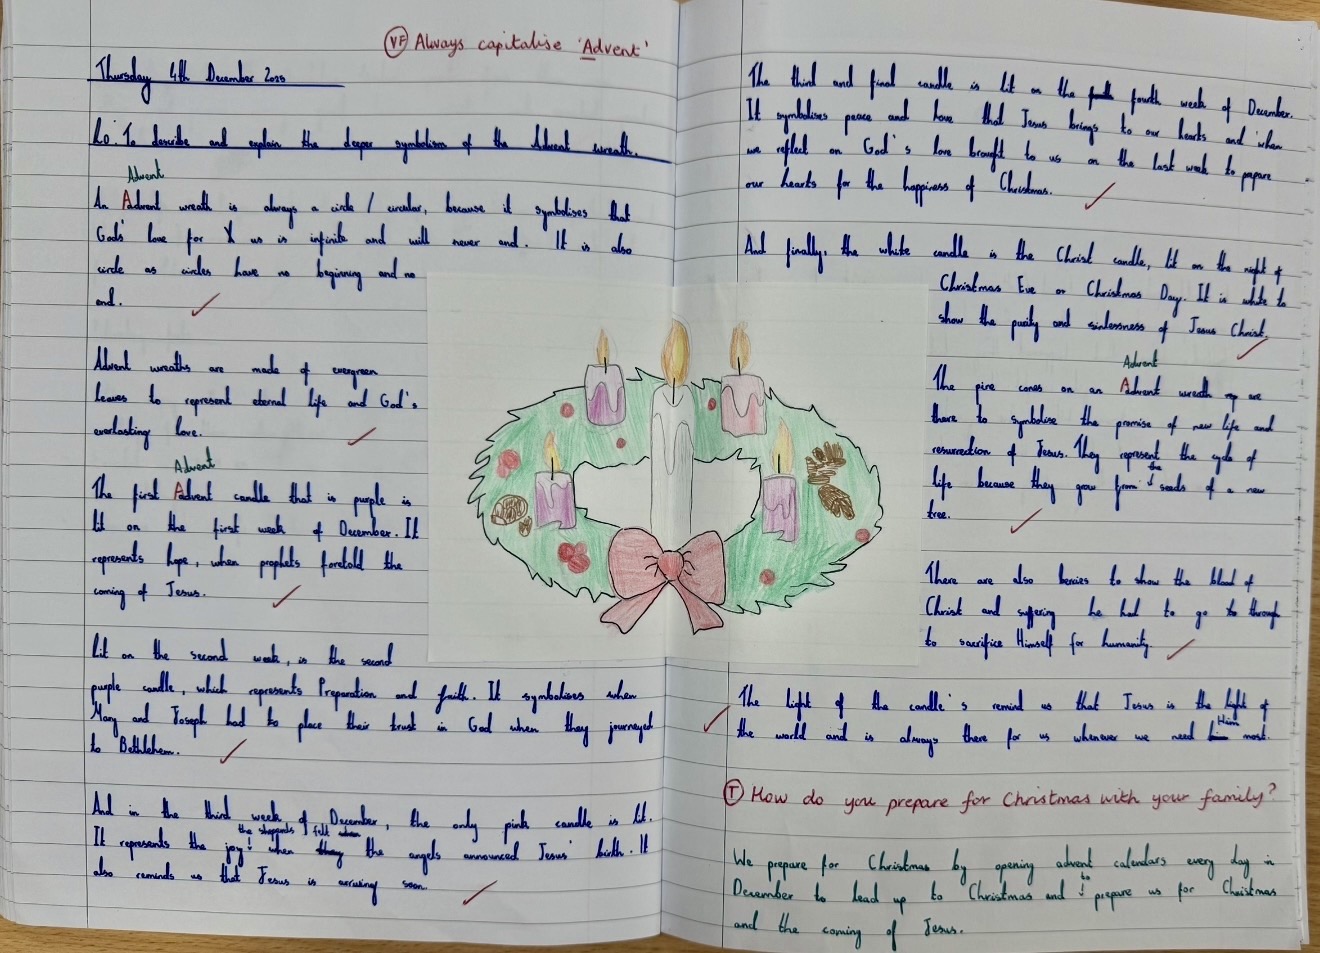 VF Always capitalise 'Advent'
Thursday 4th December 2025
Lo: To describe and explain the deeper symbolism of the Advent wreath.
Advent
An Advent wreath is always a circle / circular, because it symbolises that
Gods' love for us is infinite and will never end. It is also
circle as circles have no beginning and no
end.
Advent wreaths are made of evergreen
leaves to represent eternal life and God's
everlasting love.
Advent
The first Advent candle that is purple is
lit on the first week of December. It
represents hope, when prophets foretold the
coming of Jesus.
Lit on the second week, is the second
purple candle, which represents Preparation and faith. It symbolises when
Mary and Joseph had to place their trust in God when they journeyed
to Bethlehem.
And in the third week of December, the only pink candle is lit.
the shepards felt
It represents the joy when the angels announced Jesus' birth. It
also reminds us that Jesus is arriving soon.
The third and final candle is lit on the fourth week of December.
It symbolises peace and love that Jesus brings to our hearts and when
we reflect on God's love brought to us on the last week to papare
our hearts for the happiness of Christmas.
And finally, the white candle is the Christ candle, lit on the night of
Christmas Eve or Christmas Day. It is white to
show the purity and sinlessness of Jesus Christ.
Advent
The pine cones on an Advent wreath are
there to symbolise the promise of new life and
resurrection of Jesus. They represent the cycle of
the
life because they grow from seeds of a new
tree.
There are also berries to show the blood of
Christ and suffering he had to go through
to sacrifice Himself for humanity.
The light of the candle's remind us that Jesus is the light of
Him
the world and is always there for us whenever we need him most.
T How do you prepare for Christmas with your family?
We prepare for Christmas by opening advent calendars every day in
to
December to lead up to Christmas and prepare us for Christmas
and the coming of Jesus.